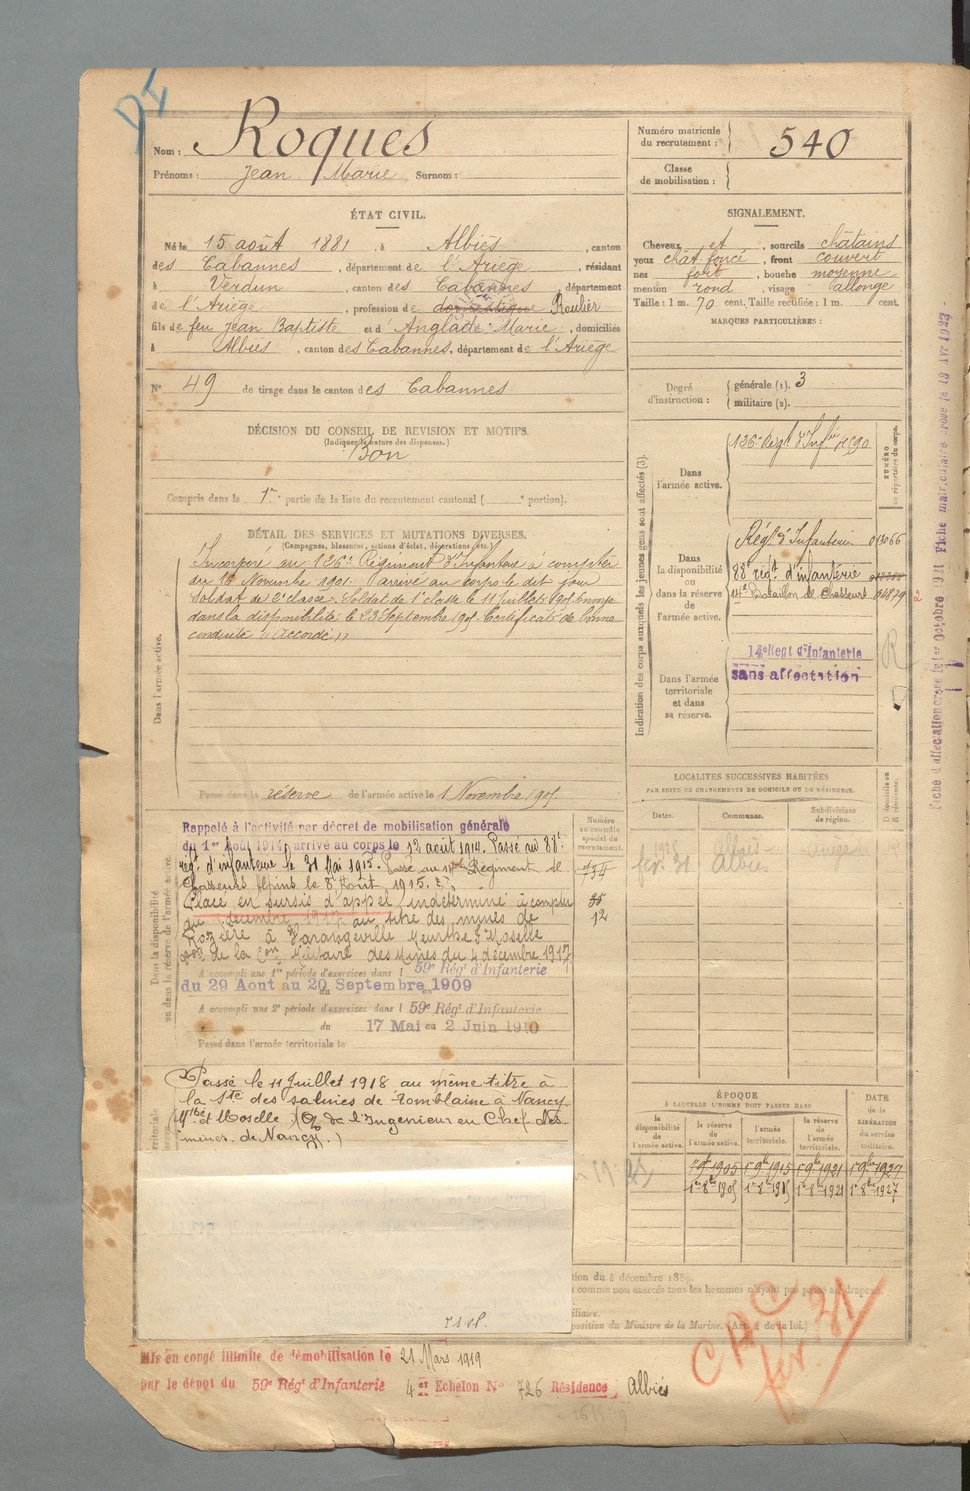 Nom : Roques
Prénoms : Jean Marie Surnom :
Numéro matricule
du recrutement : 540
Classe
de mobilisation :
ÉTAT CIVIL.
Né le 15 août 1881, à Albiès, canton
des Cabannes, département de l'Ariège, résidant
à Verdun, canton des Cabannes, département
de l'Ariège, profession de domestique Roulier
fils de feu Jean Baptiste et d'Anglade Marie, domiciliés
à Albiès, canton des Cabannes, département de l'Ariège
N° 49 de tirage dans le canton des Cabannes
SIGNALEMENT.
Cheveux et, sourcils châtains
yeux chât. foncé, front couvert
nez fort, bouche moyenne
menton rond, visage allongé
Taille : 1 m. 70 cent. Taille rectifiée : 1 m. cent.
MARQUES PARTICULIÈRES :
Degré
d'instruction :
générale (1). 3
militaire (2).
DÉCISION DU CONSEIL DE REVISION ET MOTIFS.
(Indiquer la nature des dispenses.)
Bon
Compris dans la 1re partie de la liste du recrutement cantonal ( e portion).
DÉTAIL DES SERVICES ET MUTATIONS DIVERSES.
(Campagnes, blessures, actions d'éclat, décorations, etc.)
Dans l'armée active.
Incorporé au 126e Régiment d'Infanterie à compter
du 16 Novembre 1901. arrivé au corps le dit jour
soldat de 2e classe. Soldat de 1e classe le 11 Juillet 190. Envoyé
dans la disponibilité le 23 Septembre 190. Certificat de bonne
conduite "Accordé"
Passé dans la réserve de l'armée active le 1 Novembre 190
Indication des corps auxquels les jeunes gens sont affectés (3).
NUMÉRO
au répertoire du corps.
Dans
l'armée active.
126e Régt d'Infie
Dans
la disponibilité
ou
dans la réserve
de
l'armée active.
Régt d'Infanterie
88e régt d'infanterie
14e Bataillon de Chasseurs
Dans l'armée
territoriale
et dans
sa réserve.
14e Regt d'Infanterie
sans affectation
R
LOCALITÉS SUCCESSIVES HABITÉES
PAR SUITE DE CHANGEMENTS DE DOMICILE OU DE RÉSIDENCE.
Dates. Communes. Subdivisions
de région. D domicile ou
R résidence.
fév. 31 Albiès
Dans la disponibilité
ou dans la réserve de l'armée active.
Numéro
au contrôle
spécial du
recrutement.
Rappelé à l'activité par décret de mobilisation générale
du 1er Août 1914, arrivé au corps le 12 août 1914. Passé au 88e
régt d'infanterie le 31 Mai 1915. Passé au 14e Régiment de
Chasseurs Alpins le 8 Août 1915.
Placé en sursis d'appel indéterminé à compter
du décembre 1917 au titre des mines de
Rozière à Varangeville Meurthe & Moselle
de la Con Militaire des Mines du 4 décembre 1917
A accompli une 1re période d'exercices dans l 59e Régt d'Infanterie
du 29 Aout au 20 Septembre 1909
A accompli une 2e période d'exercices dans l 59e Régt d'Infanterie
du 17 Mai au 2 Juin 1910
Passé dans l'armée territoriale le
Passé le 11 Juillet 1918 au même titre à
la Sté des salines de Tomblaine à Nancy
Mthe et Moselle (de l'Ingenieur en Chef des
mines de Nancy.)
ÉPOQUE
À LAQUELLE L'HOMME DOIT PASSER DANS
la
disponibilité
de
l'armée active.
la réserve
de
l'armée active.
l'armée
territoriale.
la réserve
de
l'armée
territoriale.
DATE
de la
LIBÉRATION
du service
militaire.
1er 9bre 1905 1er 9bre 1915 1er 9bre 1921 1er 9bre 1927
1er 8bre 1905 1er 8bre 1915 1er 8bre 1921 1er 8bre 1927
tion du 4 décembre 1889.
comme non exercés tous les hommes n'ayant pas passé au drapeau.
iliaire.
position du Ministre de la Marine. (Art. 4 de la loi.)
Mis en congé illimité de démobilisation le 21 Mars 1919
par le dépôt du 59e Régt d'Infanterie 4 et Echelon N° 726 Résidence Albiès
CAC
fév. 31